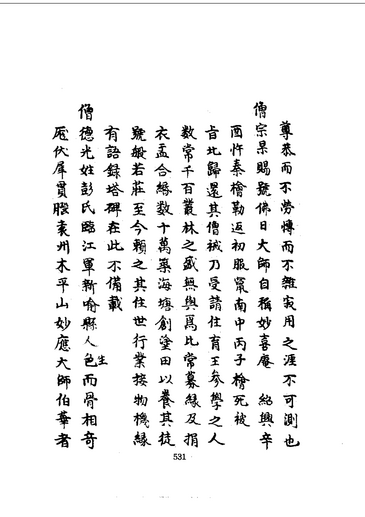 尊恭而不勞博而不雜寂用之涯不可測也
僧宗杲賜號佛日大師自稱妙喜庵 紹興辛
酉忤秦檜勒返初服竄南中丙子檜死被
旨北歸還其僧被乃受請住育王參學之人
數常千百叢林之盛無與爲比常募緣及捐
衣盂合緡數十萬築海塘創塗田以養其徒
號般若莊至今賴之其住世行業接物機緣
有語錄塔碑在此不備載
僧德光姓彭氏臨江軍新喻縣人生色而骨相奇
厖伏犀貫腦袁州木平山妙應大師伯華者
531